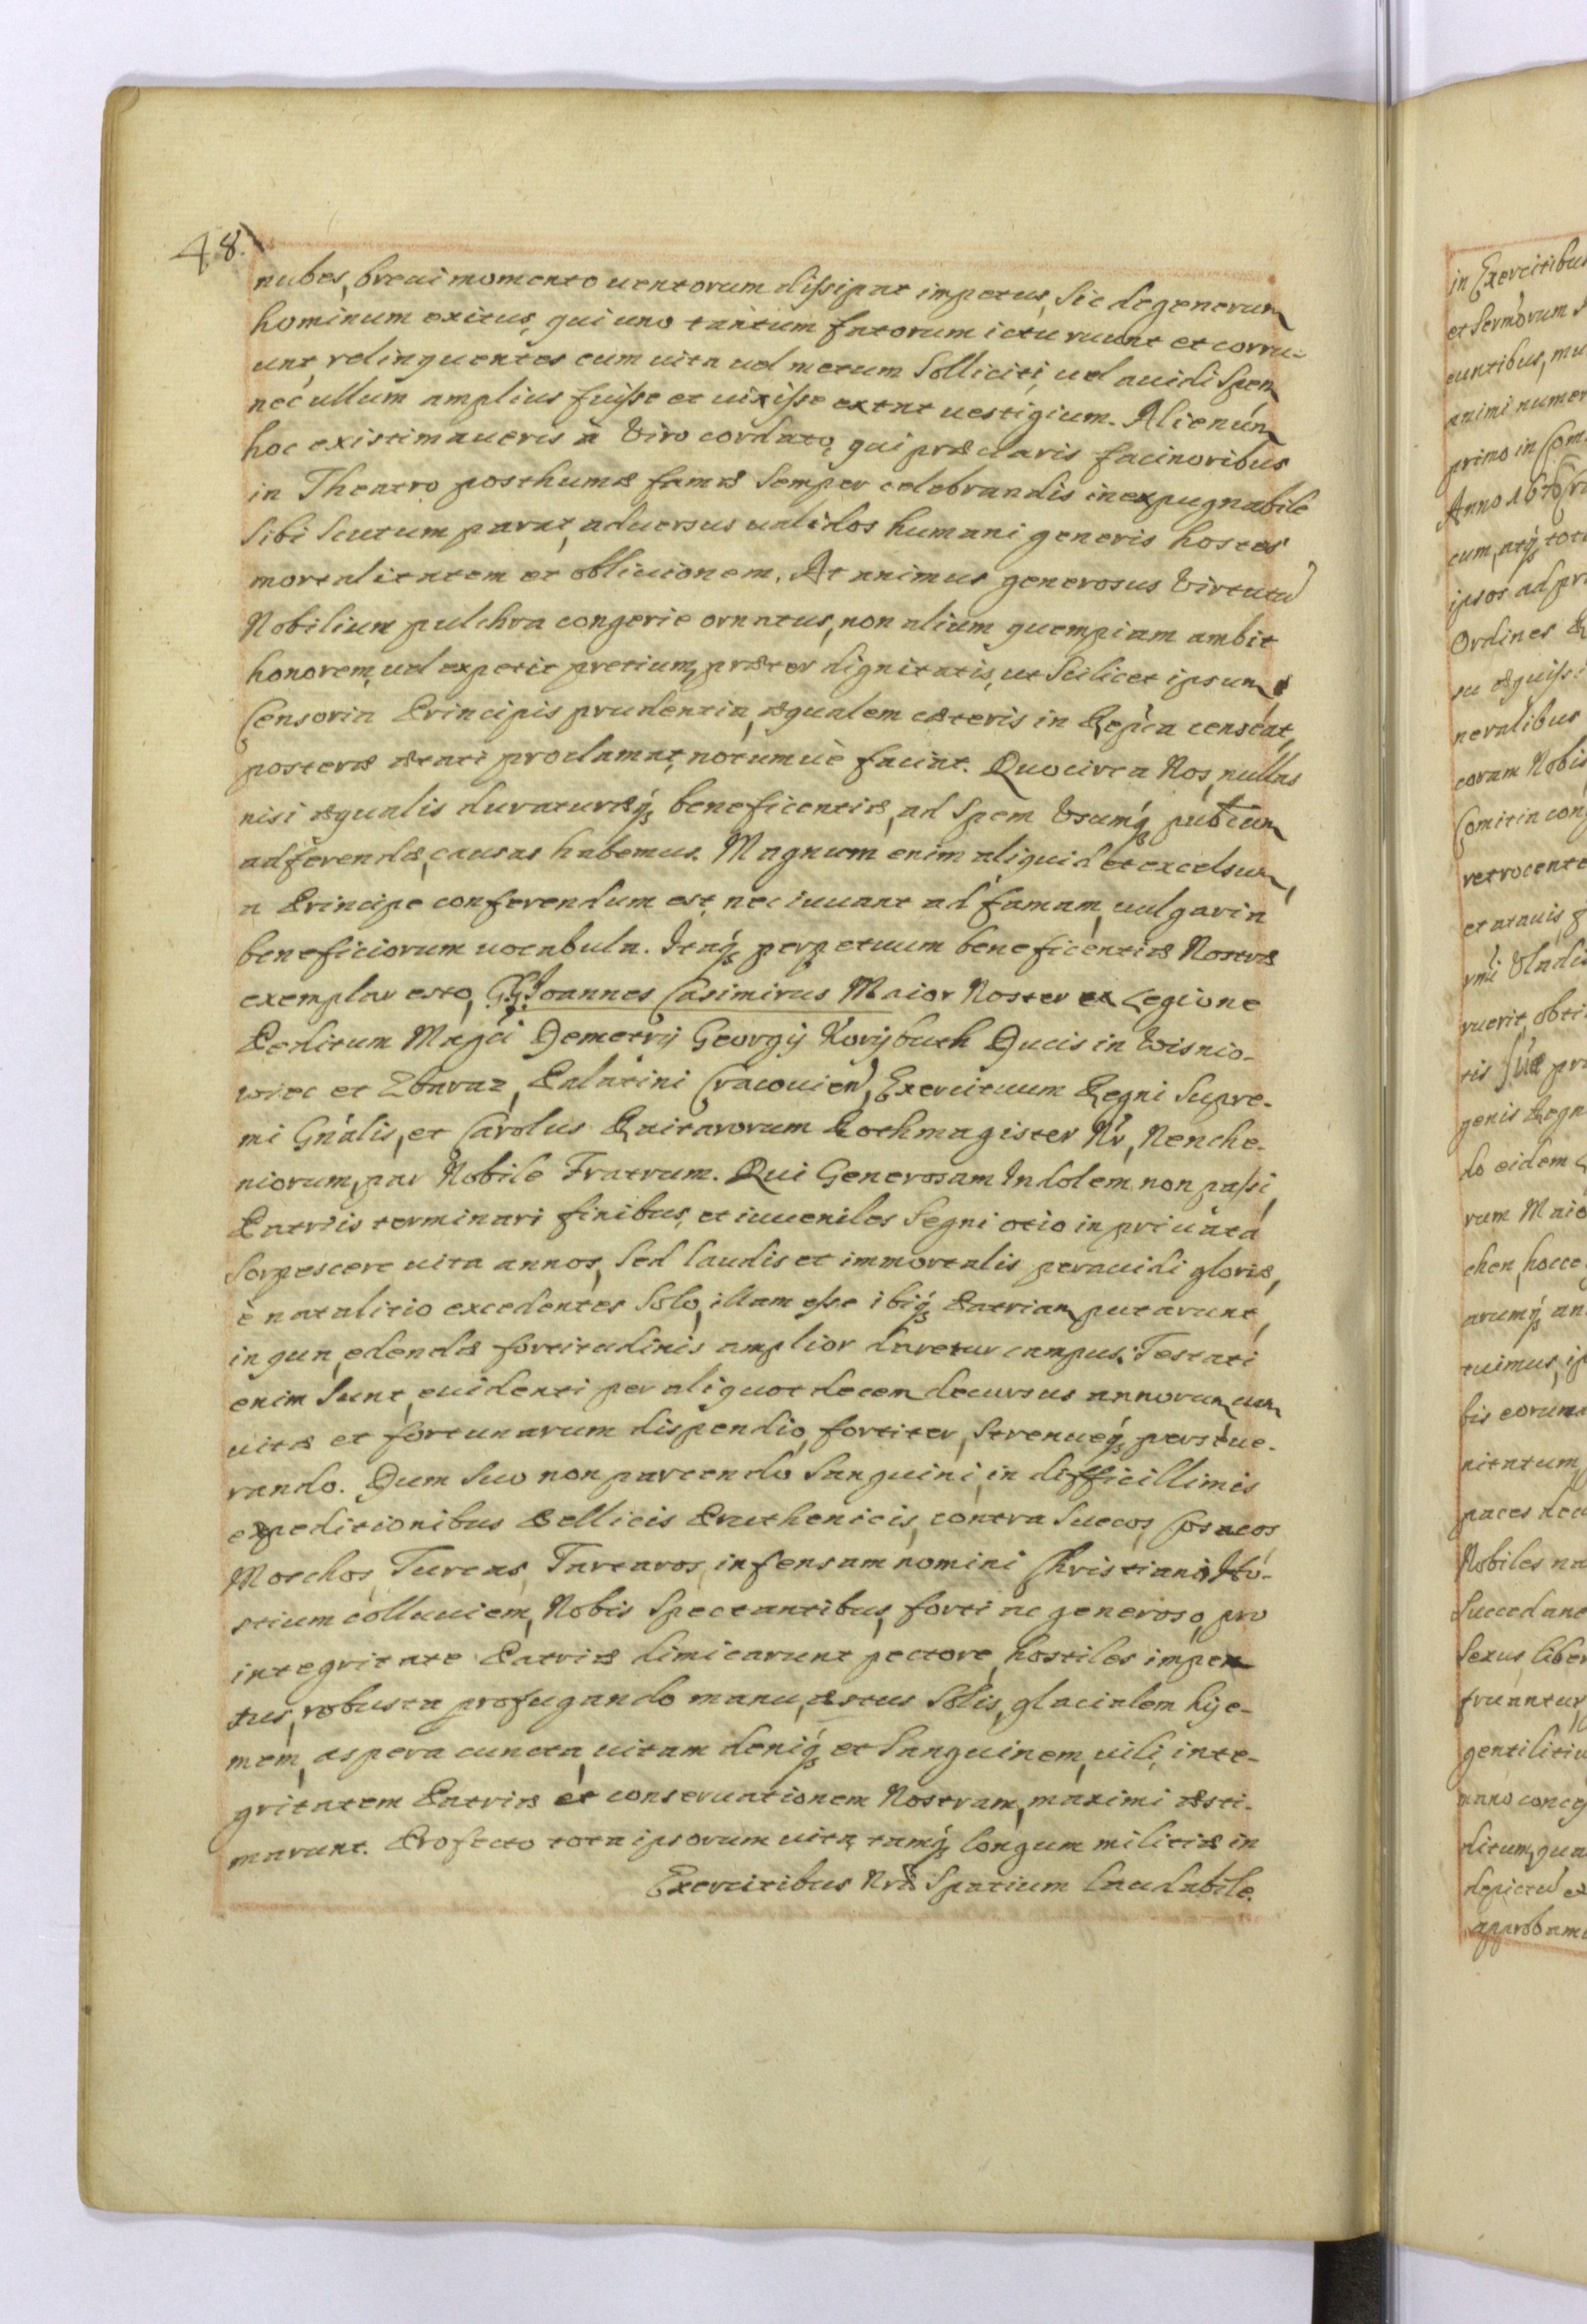 48.
nubes, breui momento uentorum dissipat impetus, Sic degenerum
hominum exitus, qui uno tantum fatorum ictu ruunt et corru-
unt, relinquentes cum uita uel metum Solliciti, uel auidi Spem
nec ullum amplius fuisse et uixisse extat uestigium. Alienum
hoc existimaueris à Viro cordato, qui præclaris facinoribus
in Theatro posthumæ famæ Semper celebrandis inexpugnabile
Sibi Scutum parat, aduersus ualidos humani generis hostes
mortalitatem et obliuionem. At animus generosus Virtutu
Nobilium pulchra congerie ornatus, non alium quempiam ambit
honorem, uel expetit pretium, præter dignitatis, ut Scilicet ipsum
Censoria Principis prudentia, æqualem cæteris in Repca censeat,
posteræ ætati proclamat, notumuè faciat. Quocirca Nos, nullas
nisi æqualis duraturæq beneficentiæ, ad Spem Vsumq publicum
adferendæ, causas habemus. Magnum enim aliquid et excelsum,
a Principe conferendum est, nec iuuant ad famam, uulgaria
beneficiorum uocabula. Itaq perpetuum beneficentiæ Nostræ
exemplar esto, GG. Joannes Casimirus Maior Noster ex Legione
Peditum Magci Demetrij Georgij Korijbuth Ducis in Wisnio-
wiec et Zbaraz, Palatini Cracouien, Exercituum Regni Supre-
mi Gnalis, et Carolus Raitarorum Rothmagister Nr, Nenche-
niorum, par Nobile Fratrum. Qui Generosam Indolem non passi,
Patriis terminari finibus, et iuueniles Segni otio in priuata
Torpescere uita annos, Sed laudis et immortalis perauidi gloriæ,
è natalitio excedentes Solo, illam esse ibiq Patriam putarunt,
in qua, edendæ fortitudinis amplior daretur campus. Testati
enim Sunt, euidenti per aliquot decem decursus annorum cum
uitæ et fortunarum dispendio, fortiter, Strenueq perseue-
rando. Dum Suo non parcendo Sanguini, in difficillimis
expeditionibus Bellicis Pruthenicis, contra Suecos, Cosacos
Moschos, Turcas, Tartaros, infensam nomini Christiano Ho-
stium colluuiem, Nobis Spectantibus, forti ac generoso, pro
integritate Patriæ dimicarunt pectore, hostiles impe-
tus, robusta profugando manu, æstus Solis, glacialem hije-
mem, aspera cuncta, uitam deniq et Sanguinem, uili, inte-
gritatem Patriæ et conseruationem Nostram, maximi æsti-
marunt. Profecto tota ipsorum uita, tamq longum militiæ in
Exercitibus Nris Spatium laudabile.
in Exercitibus
et Sermorum
euntibus, mu
animi numer
primo in Com
Anno 1676
cum, atq tot
ipsos ad pr
Ordines
su æquiss
neralibus
coram Nobis
Comitia con
retrocente
et atauis
Vladis
ruerit, obti
tis pr
genis Regn
do eidem
rum Maio
chen, hocce
arumq an
tuimus, ip
bis eorum
nitatum
paces
Nobiles na
Succedane
Sexus, liber
fruantur
gentilitiu
mano conce
ditum, qua
depictu ex
approbam